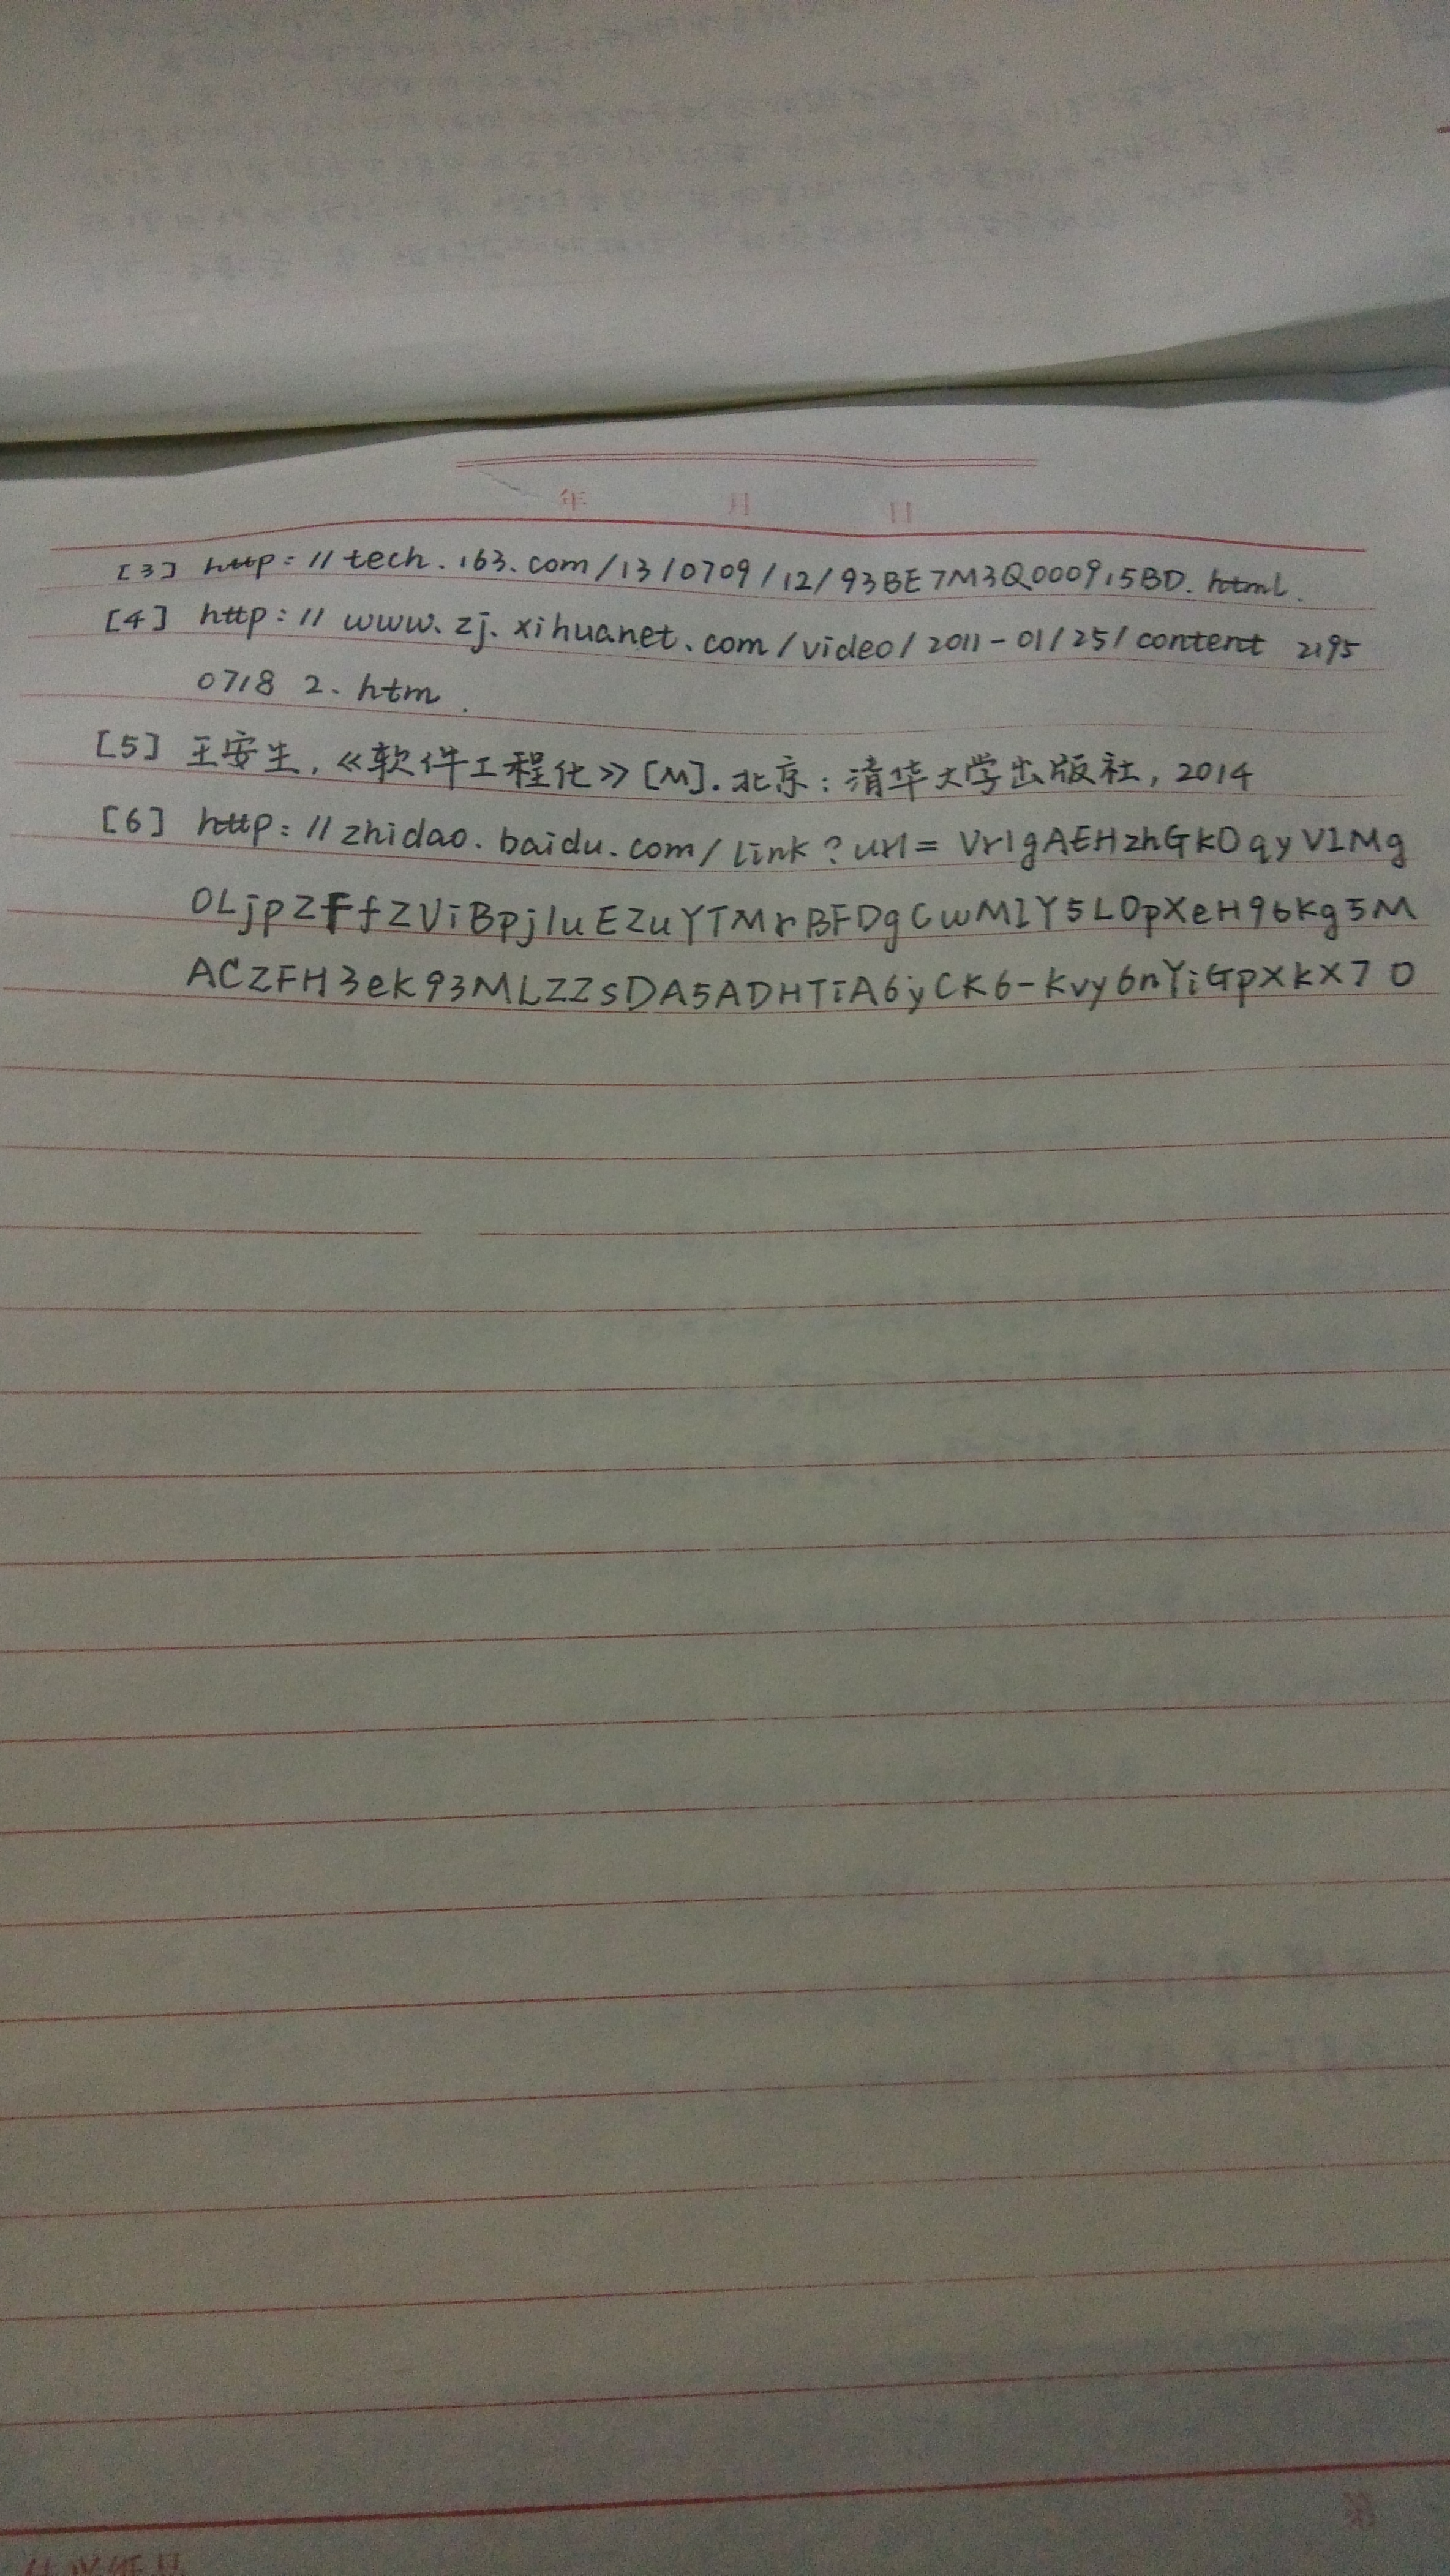 年 月 日
[3] http://tech.163.com/13/0709/12/93BE7M3Q000915BD.html.
[4] http://www.zj.xihuanet.com/video/2011-01/25/content 2195
0718 2.htm.
[5] 王安生,《软件工程化》[M].北京:清华大学出版社,2014
[6] http://zhidao.baidu.com/link?url=VrlgAEHzhGkOqyVIMg
OLjpZFfZViBpjluEZuYTMrBFDgCwMIY5LOpXeH96Kg5M
ACZFH3ek93MLZZsDA5ADHTiA6yCK6-Kvy6nYiGpXkX70